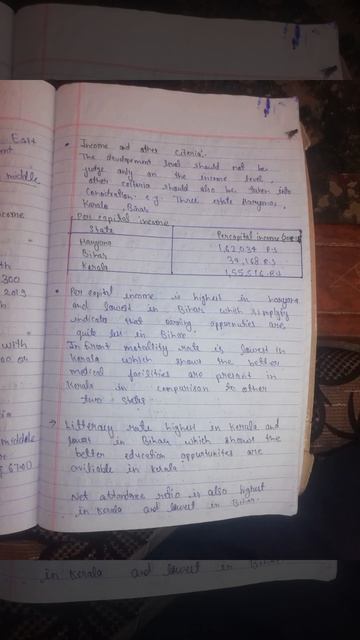 East
middle
income
300
2019
with
middle
6700
• Income and other citeria.
The development level should not be
judge only on the income level.
other criteria should also be taken into
Consideration e.g. Three state Haryana,
Kerala, Bihar
Per capital income
State Percapital income
Haryana 1,62,034 R.S
Bihar 34,168 R.S
Kerala 1,55,516 R.S
• Per capital income is highest in haryana
and lowest in Bihar which simply
indicate that earning opportunities are
quite less in Bihar
Infrant mortality rate is lowest in
Kerala which shows the better
medical facilities are present in
Kerala in comparison to other
two states
→ Litteracy rate highest in Kerala and
lower in Bihar which shows the
better education opportunites are
avilable in Kerala.
Net attandance ratio is also highest
in Kerala and lowest in Bihar.
in Kerala and lowest in Bihar